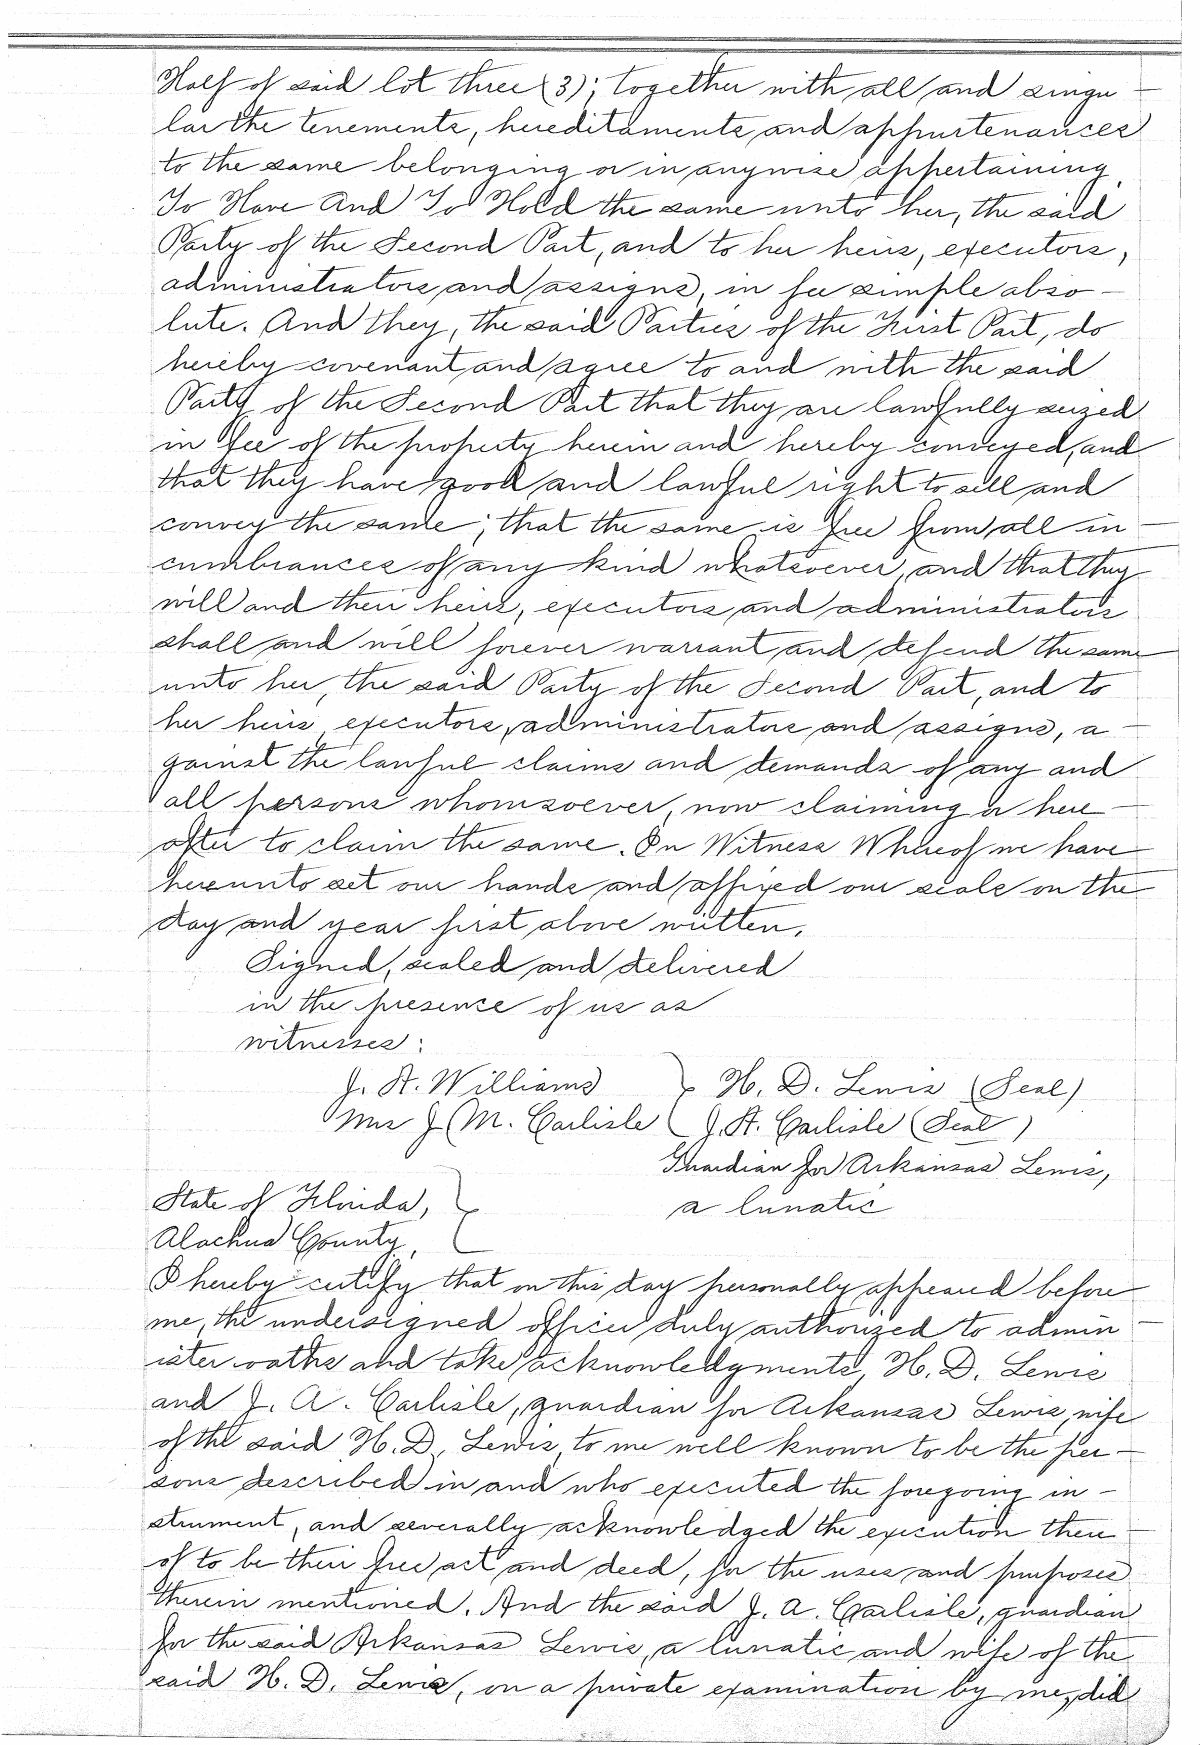 Half of said lot three (3); together with all and singu-
lar the tenements, hereditaments and appurtenances
to the same belonging or in anywise appertaining.
To Have And To Hold the same unto her, the said
Party of the Second Part, and to her heirs, executors,
administrators and assigns, in fee simple abso-
lute. And they, the said Parties of the First Part, do
hereby covenant and agree to and with the said
Party of the Second Part that they are lawfully seized
in fee of the property herein and hereby conveyed, and
that they have good and lawful right to sell and
convey the same; that the same is free from all in-
cumbrances of any kind whatsoever, and that they
will and their heirs, executors and administrators
shall and will forever warrant and defend the same
unto her, the said Party of the Second Part, and to
her heirs, executors, administrators and assigns, a-
gainst the lawful claims and demands of any and
all persons whomsoever, now claiming or here-
after to claim the same. In Witness Whereof we have
hereunto set our hands and affixed our seals on the
day and year first above written.
Signed, sealed and delivered
in the presence of us as
witnesses:
J. A. Williams } H. D. Lewis (Seal)
Mrs J. M. Carlisle ( J. A. Carlisle (Seal)
Guardian for Arkansas Lewis,
a lunatic
State of Florida, }
Alachua County,
I hereby certify that on this day personally appeared before
me, the undersigned officer duly authorized to admin-
ister oaths and take acknowledgments, H. D. Lewis
and J. A. Carlisle, guardian for Arkansas Lewis, wife
of the said H. D. Lewis, to me well known to be the per-
sons described in and who executed the foregoing in-
strument, and severally acknowledged the execution there-
of to be their free act and deed, for the uses and purposes
therein mentioned. And the said J. A. Carlisle, guardian
for the said Arkansas Lewis, a lunatic and wife of the
said H. D. Lewis, on a private examination by me, did